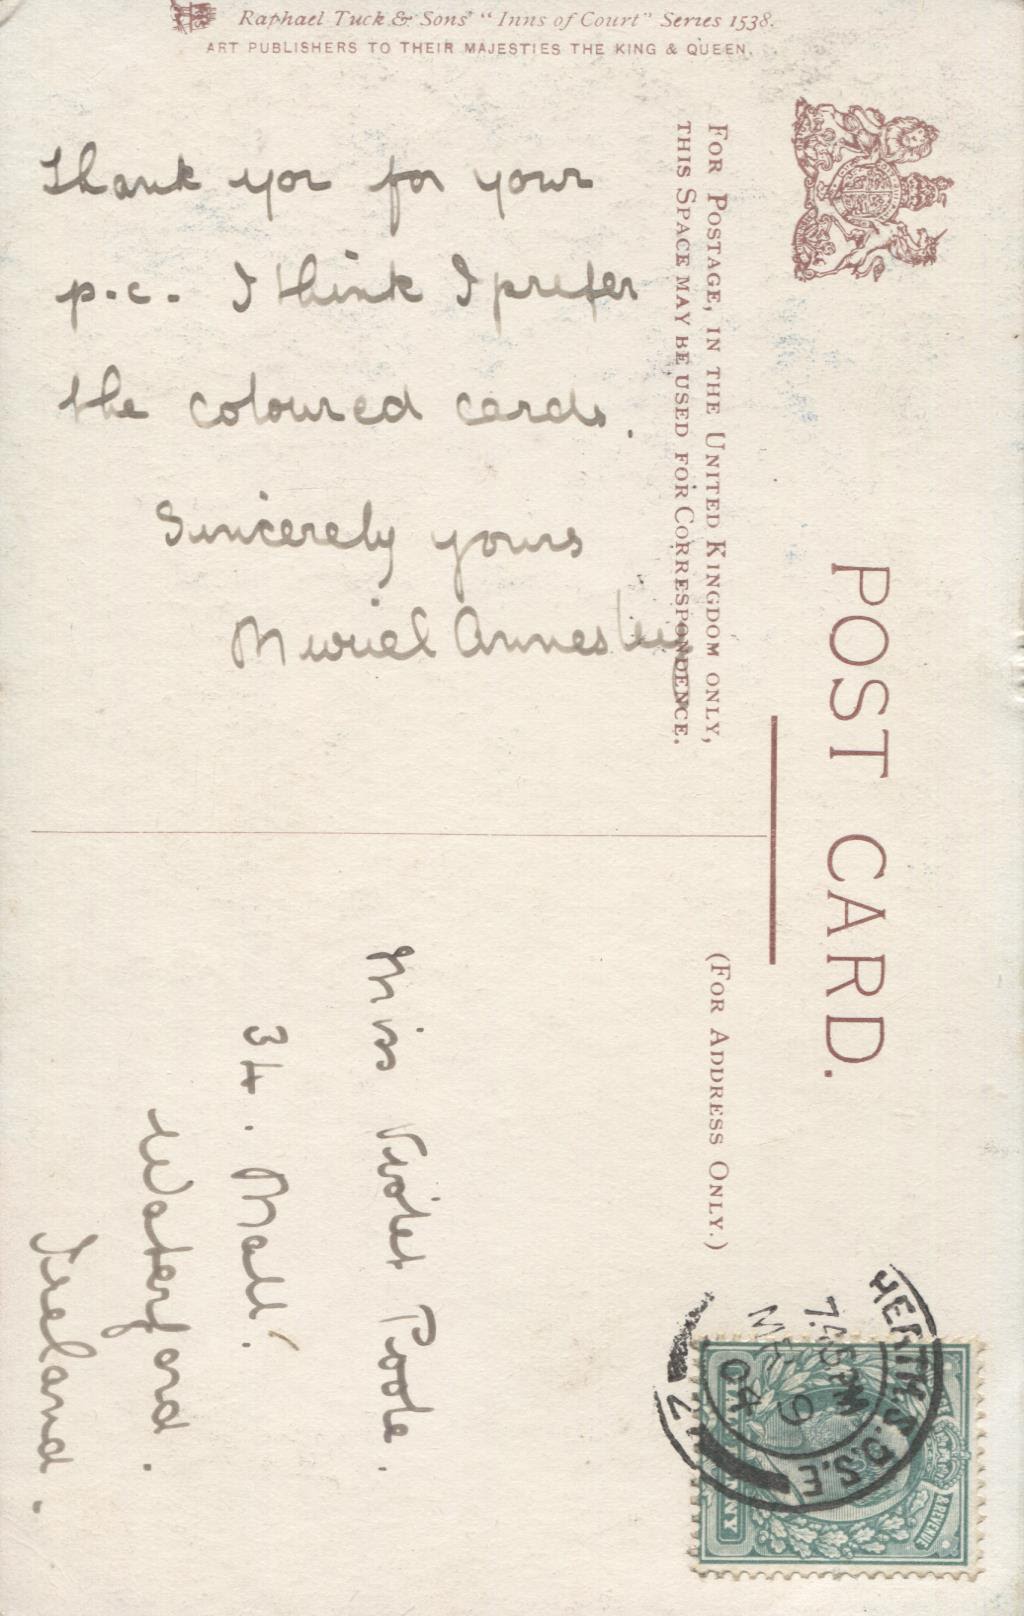 Raphael Tuck & Sons' "Inns of Court" Series 1538.
ART PUBLISHERS TO THEIR MAJESTIES THE KING & QUEEN.
POST CARD.
FOR POSTAGE, IN THE UNITED KINGDOM ONLY,
THIS SPACE MAY BE USED FOR CORRESPONDENCE.
(FOR ADDRESS ONLY.)
Thank you for your
p.c. I think I prefer
the coloured cards.
Sincerely yours
Muriel Annesley
Miss Violet Poole.
34. Mall.
Waterford.
Ireland.
S.D.S.E
7.45PM
9
04
& REVENUE